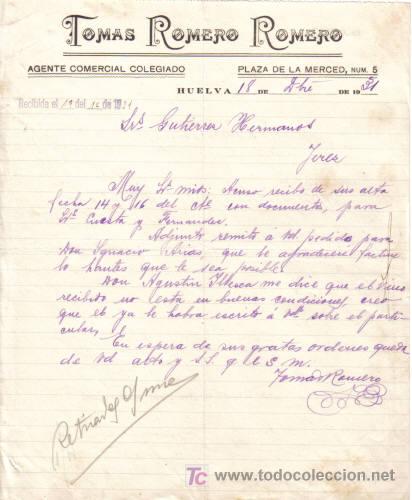 TOMAS ROMERO ROMERO
AGENTE COMERCIAL COLEGIADO
PLAZA DE LA MERCED, NUM. 5
HUELVA 18 DE Dbre DE 1931
Recibida el 19 del 12 de 1931
Srs Gutierrez Hermanos
Jerez
Muy Srs mios: Acuso recibo de sus atta
fecha 14 y 16 del cte con documentos, para
Srs Cuesta y Fernandez.
Adjunto remito á Vd pedido para
Don Ignacio Arias, que le agradeceré facture
lo hantes que le sea posible
Don Agustin Illesca me dice que el vino
recibido no está en buenas condiciones creo
que el ya le habra escrito á Vds sobre el parti-
cular,
En espera de sus gratas ordenes queda
de Vd atto y S.S. q. e. S. m.
Tomas Romero
TC www.todocoleccion.net